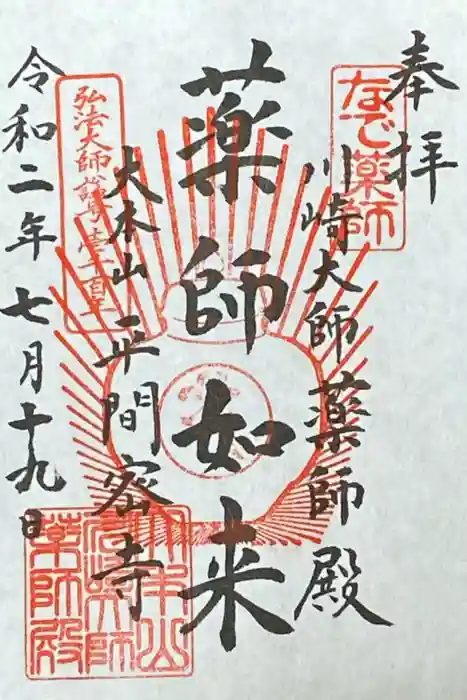 奉拝
なで薬師
川崎大師薬師殿
薬師如来
大本山
平間密寺
弘法大師
壱千百年
令和二年七月十九日
大本山
川崎大師
薬師殿